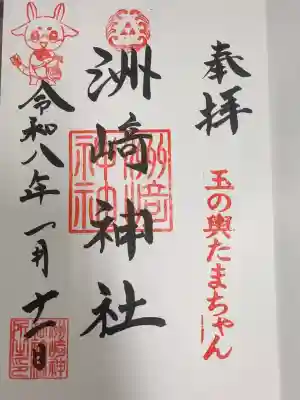 奉拝
玉の輿たまちゃん
洲崎神社
洲崎神社
令和八年一月十一日